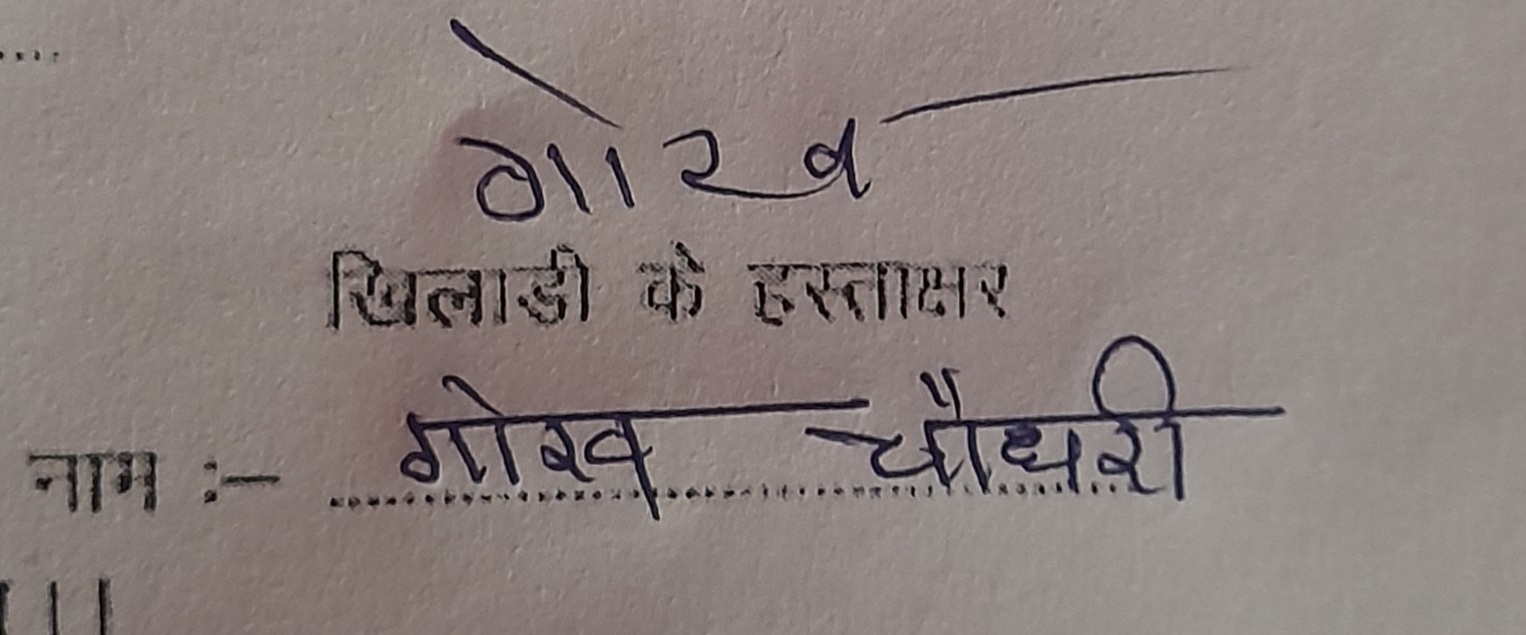 गोरव
खिलाडी के हस्ताक्षर
नाम :- गोरव चौधरी